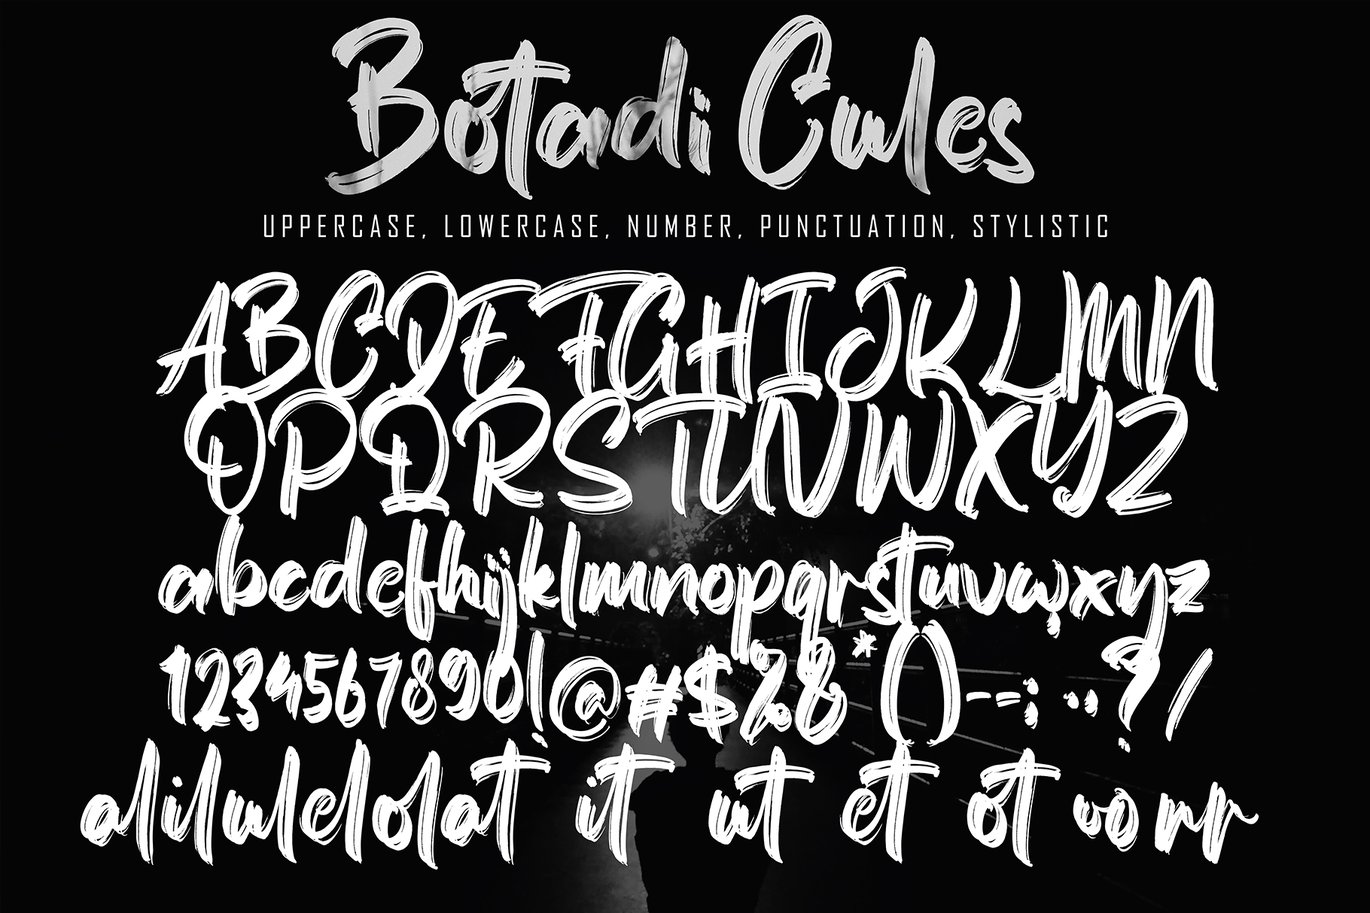 Botadi Cules
UPPERCASE, LOWERCASE, NUMBER, PUNCTUATION, STYLISTIC
ABCDEFGHIJKLMN
OPQRSTUVWXYZ
abcdefhijklmnopqrstuvwxyz
1234567890!@#$%&*()-=;..?/
alilulelolat it ut et ot oo rr